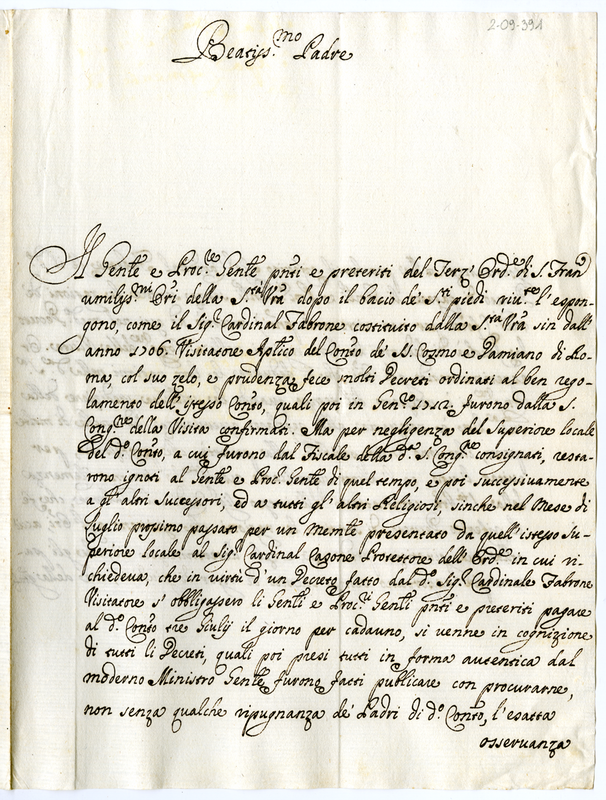 2-09-391
Beatiss.mo Padre
Il Gen͠te e Proc.re Gen͠te pn͠ti e preteriti del Terz' Ord.e di S. Fran.co
umiliss.mi Ori della S.tà Vr͠a dopo il bacio de' S.ti piedi riu.te l'espon-
gono, come il Sig.r Cardinal Fabrone costituito dalla S.tà Vr͠a sin dall'
anno 1706. Visitatore Aplico del Conto de' SS. Cosmo e Damiano di Ro-
ma, col suo zelo, e prudenza fece molti Decreti ordinati al ben rego-
lamento dell'istesso Conto, quali poi in Gen.ro 1712. furono dalla S.
Cong.ne della Visita confirmati. Ma per negligenza del Superiore locale
del d.o Conto, a cui furono dal Fiscale della d.a S. Cong.ne consignati, resta-
rono ignoti al Gen͠te e Proc. Gen͠te di quel tempo, e poi successivamente
a gl'altri Successori, ed a tutti gl'altri Religiosi, sinche nel Mese di
Luglio prossimo passato per un Mem͠te presentato da quell'istesso Su-
periore locale al Sig.r Cardinal Casone Protettore dell'Ord.e in cui ri-
chiedeva, che in virtù d'un Decreto fatto dal d.o Sig.r Cardinale Fabrone
Visitatore s'obbligassero li Gen͠ti e Proc.ri Gen͠ti pn͠ti e preteriti pagare
al d.o Conto tre Giulij il giorno per cadauno, si venne in cognizione
di tutti li Decreti, quali poi presi tutti in forma autentica dal
moderno Ministro Gen͠te furono fatti publicare con procurarne,
non senza qualche ripugnanza de' Padri di d.o Conto, l'esatta
osservanza